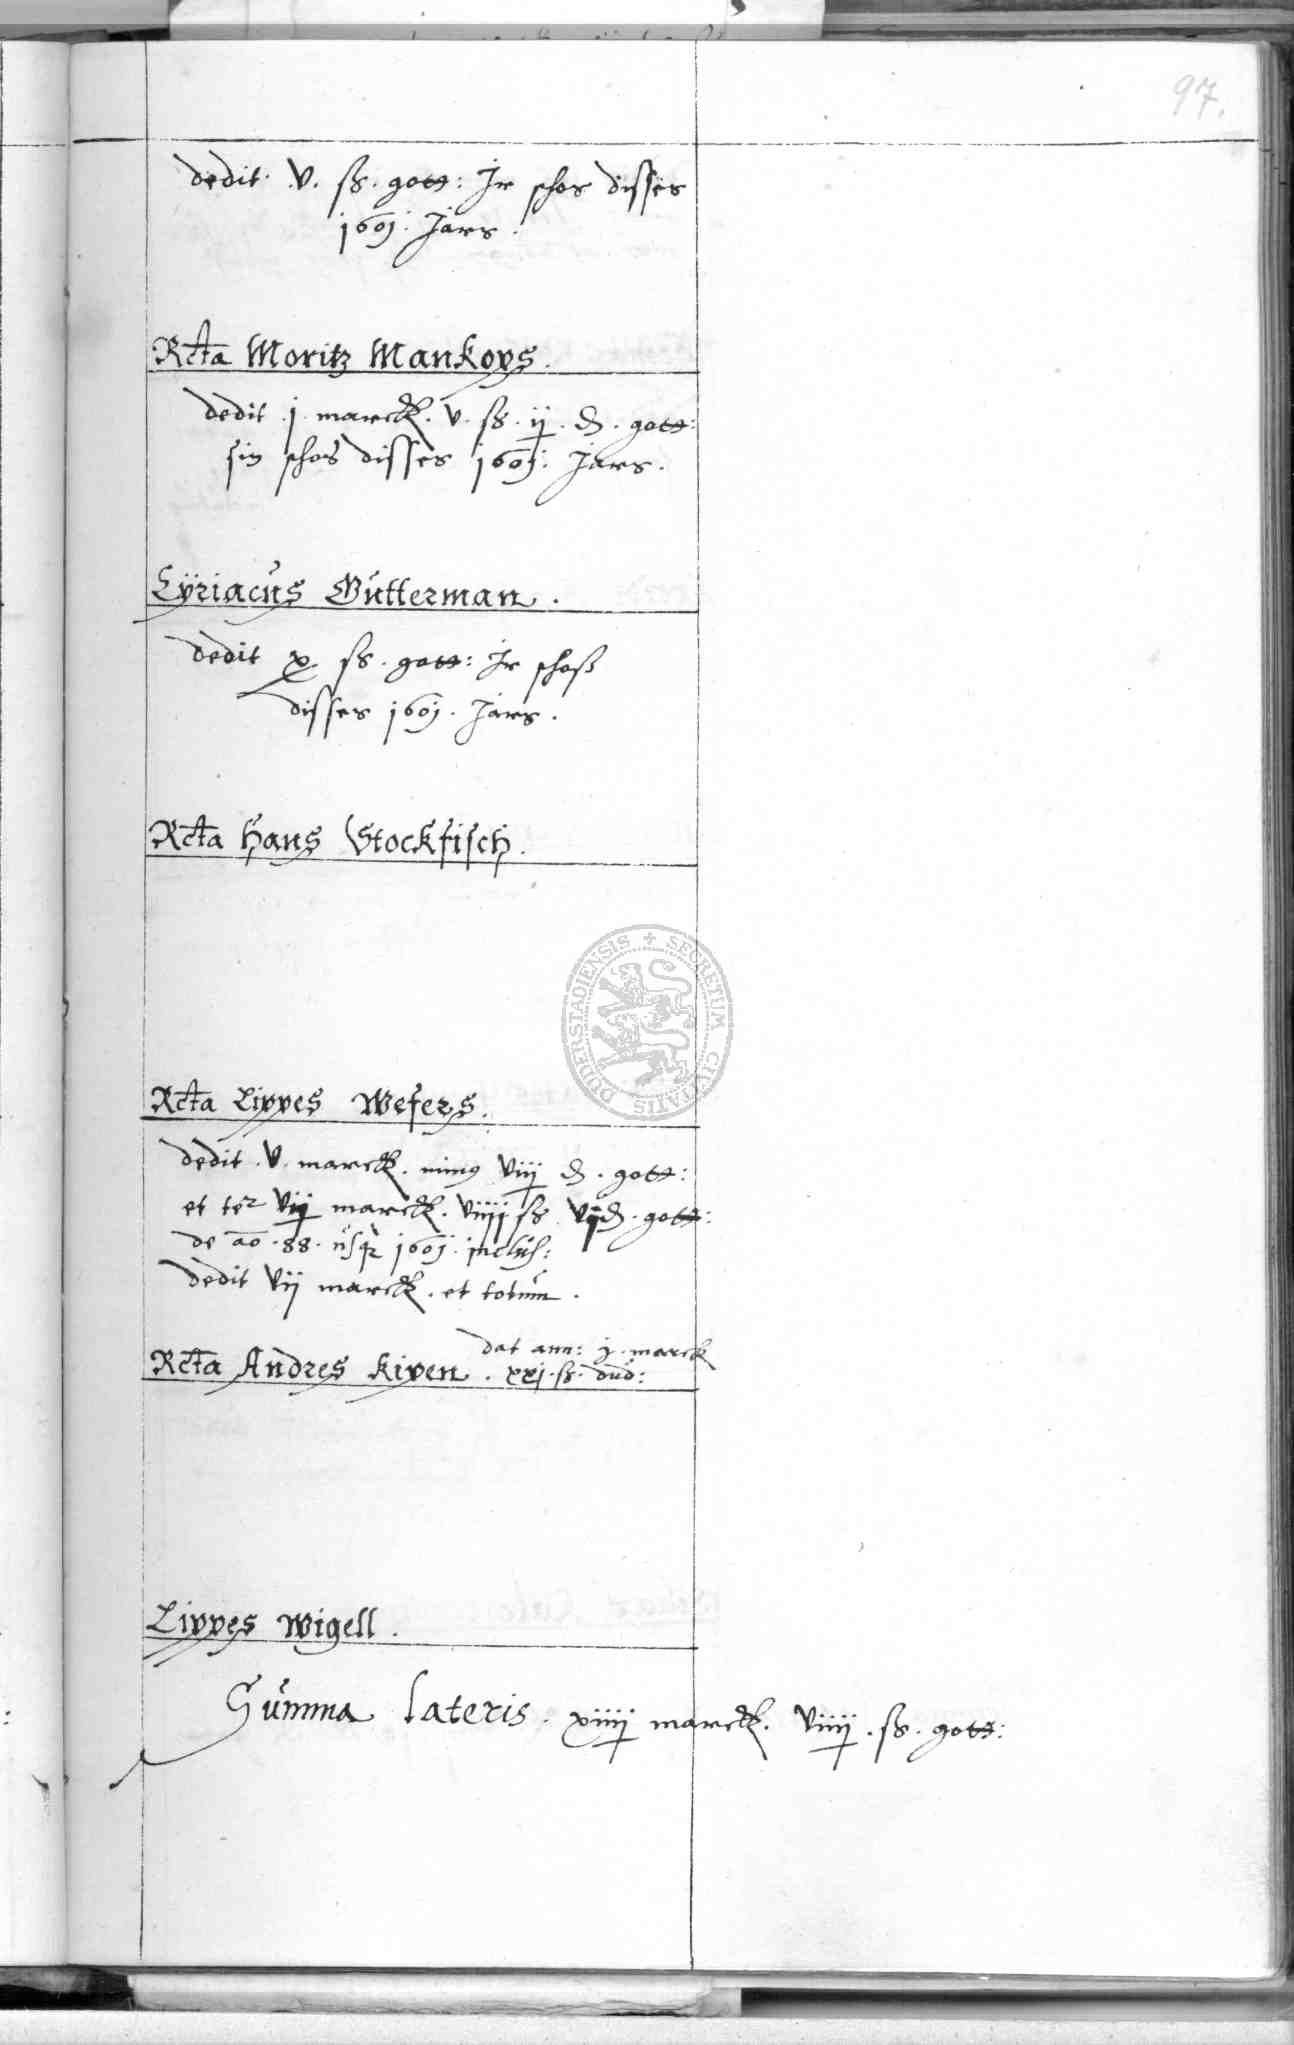 97.
dedit. v. ß. gott: Ir schos disses
1601. Jars.
Rcta Moritz Mankops.
dedit j marck. v. ß. ij. ₰. gott:
sin schos disses 1601. Jars.
Cÿriacus Gutterman.
dedit x ß. gott: Ir schoß
disses 1601. Jars.
Rcta Hans Stockfisch.
SECRETUM CIVITATIS DUDERSTADIENSIS
Rcta Lippes Wefers.
dedit. v. marck. minus viij ₰. gott:
et ter vij marck. viiij ß vij ₰. gott:
de ao. 88. usque 1601. inclus:
dedit vij marck. et totum.
dat ann: j. marck
Rcta Andres Kipen. xxj. ß. dud:
Lippes Wigell.
Summa lateris. xiiij marck. viiij. ß. gott: